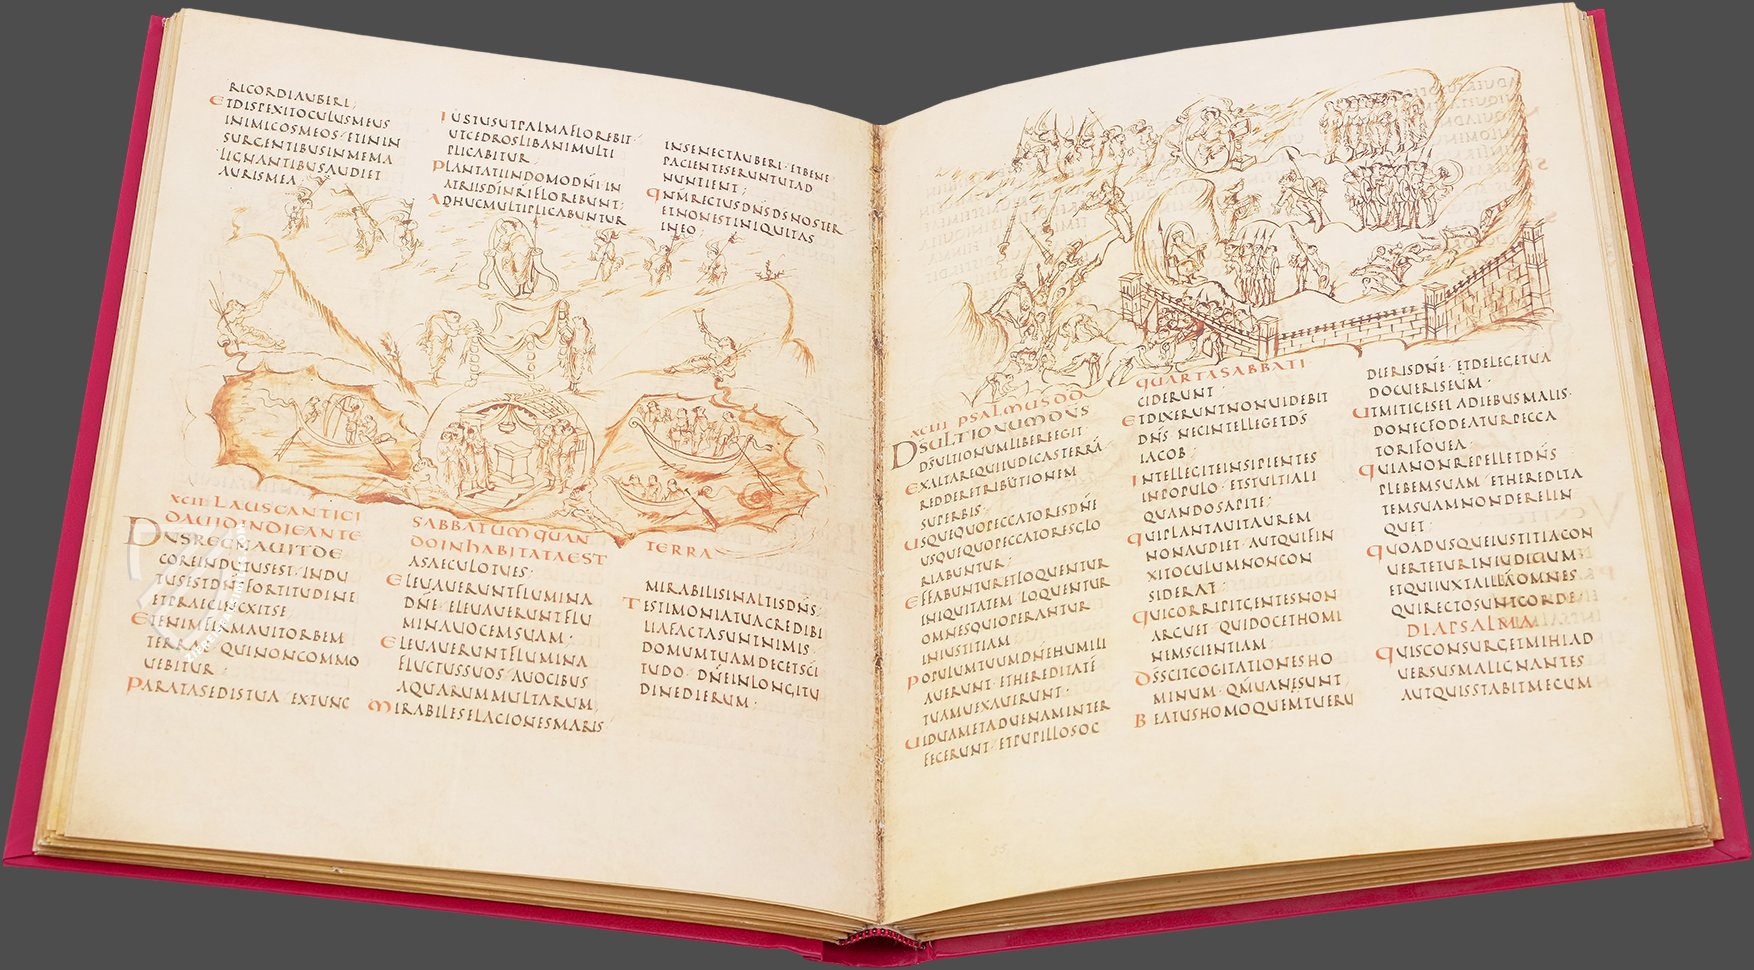 RICORDIAUBERI;
ETDISPEXITOCULUSMEUS
INIMICOSMEOS ETININ
SURGENTIBUSINMEMA
LIGNANTIBUSAUDIET
AURISMEA
IUSTUSUTPALMAFLOREBIT
UTCEDROSLIBANIMULTI
PLICABITUR
PLANTATIINDOMODNI IN
ATRIISDINRIFLOREBUNT;
ADHUCMULTIPLICABUNTUR
INSENECTAUBERI ETBENE
PACIENTESERUNTUTAD
NUNTIENT;
QNMRECTUSDNSDSNOSTER
ETNONESTINIQUITAS
INEO
XCII LAUSCANTICI
DAUIDINDIEANTE
SABBATUMQUAN
DOINHABITATAEST
TERRA
DNSREGNAUITDE
COREINDUTUSEST INDU
TUSESTDNSFORTITUDINE
ETPRAECINCXITSE;
ETENIMFIRMAUITORBEM
TERRAE QUINONCOMMO
UEBITUR;
PARATASEDISTUA EXTUNC
ASAECULOTUES;
ELEUAUERUNTFLUMINA
DNE ELEUAUERUNTFLU
MINAUOCEMSUAM
ELEUAUERUNTFLUMINA
FLUCTUSSUOS AUOCIBUS
AQUARUMMULTARUM,
MIRABILESELACIONESMARIS
MIRABILISINALTISDNS;
TESTIMONIATUACREDIBI
LIAFACTASUNTNIMIS
DOMUMTUAMDECETSCI
TUDO DNEINLONGITU
DINEDIERUM
XCIII PSALMUSDD
QUARTASABBATI
DSULTIONUMDNS
DSULTIONUMLIBEREEGIT
EXALTAREQUIIUDICASTERRA
REDDERETRIBUTIONEM
SUPERBIS
USQUEQUOPECCATORESDNE
USQUEQUOPECCATORESGLO
RIABUNTUR;
EFFABUNTURETLOQUENTUR
INIQUITATEM LOQUENTUR
OMNESQUIOPERANTUR
INIUSTITIAM
POPULUMTUUMDNEHUMILI
AUERUNT ETHEREDITATE
TUAMUEXAUERUNT
UIDUAMETADUENAMINTER
FECERUNT ETPUPILLOSOC
CIDERUNT
ETDIXERUNTNONUIDEBIT
DNS NECINTELLEGETDS
IACOB
INTELLEGITEINSIPIENTES
INPOPULO ETSTULTIALI
QUANDOSAPITE;
QUIPLANTAUITAUREM
NONAUDIET AUTQUIFIN
XITOCULUMNONCON
SIDERAT
QUICORRIPITGENTESNON
ARGUET QUIDOCETHOMI
NEMSCIENTIAM
DSSCITCOGITATIONESHO
MINUM QMUANESUNT
BEATUSHOMOQUEMTUERU
DIERISDNE ETDELEGETUA
DOCUERISEUM
UTMITIGESEIADIEBUSMALIS
DONECFODEATURPECCA
TORIFOUEA
QUIANONREPELLETDNS
PLEBEMSUAM ETHEREDITA
TEMSUAMNONDERELIN
QUET
QUOADUSQUEIUSTITIACON
UERTETURINIUDICIUM
ETQUIIUXTAILLAOMNES
QUIRECTOSUNTCORDE
DIAPSALMA
QUISCONSURGETMIHIAD
UERSUSMALIGNANTES
AUTQUISSTABITMECUM